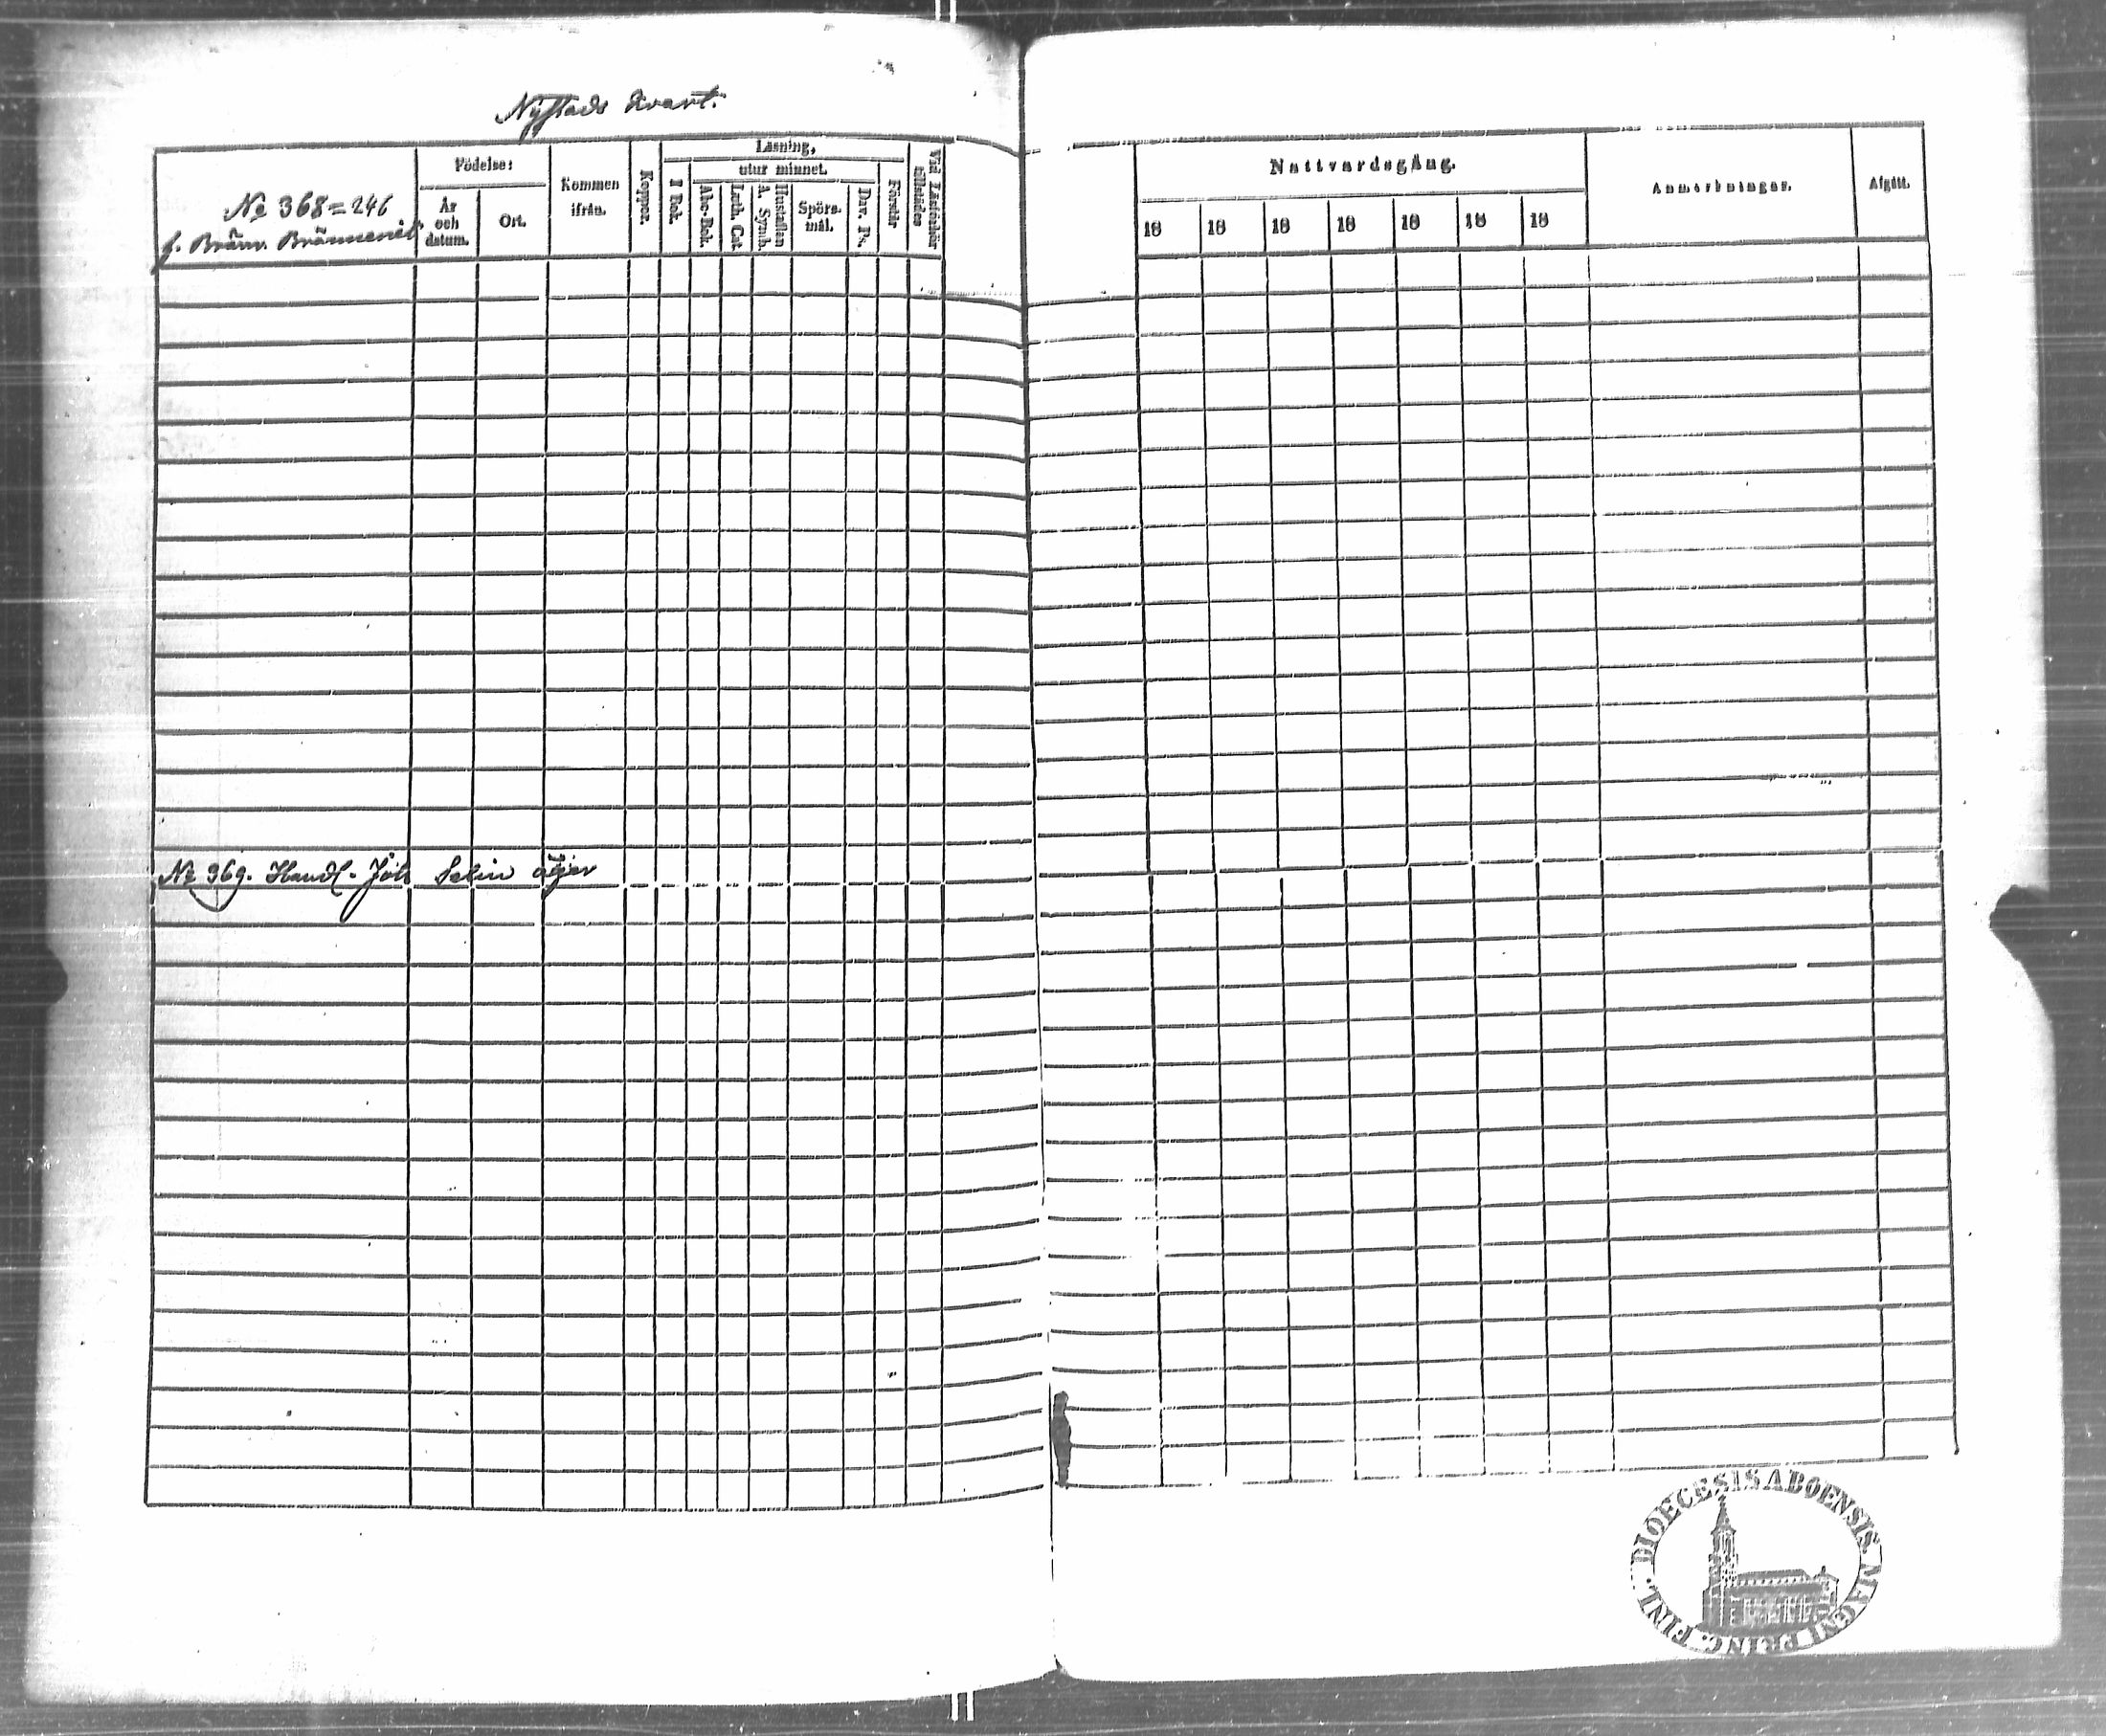 Nystads kvart.
№ 368=246
f. Bränv. Bränneriet
Födelse:
År och datum.
Ort.
Kommen ifrån.
Koppor.
Läsning,
I Bok.
utur minnet.
Abc-Bok.
Luth. Cat.
Hustaflan A. Symb.
Spörs-mål.
Dav. Ps.
Förstår
Vid Läsförhör tillstädes
Nattvardsgång.
18 18 18 18 18 18 18
Anmärkningar.
Afgått.
№ 369. Handl. Joh Selin äger
DIOECESIS ABOENSIS. MAGNI PRINC. FINL.